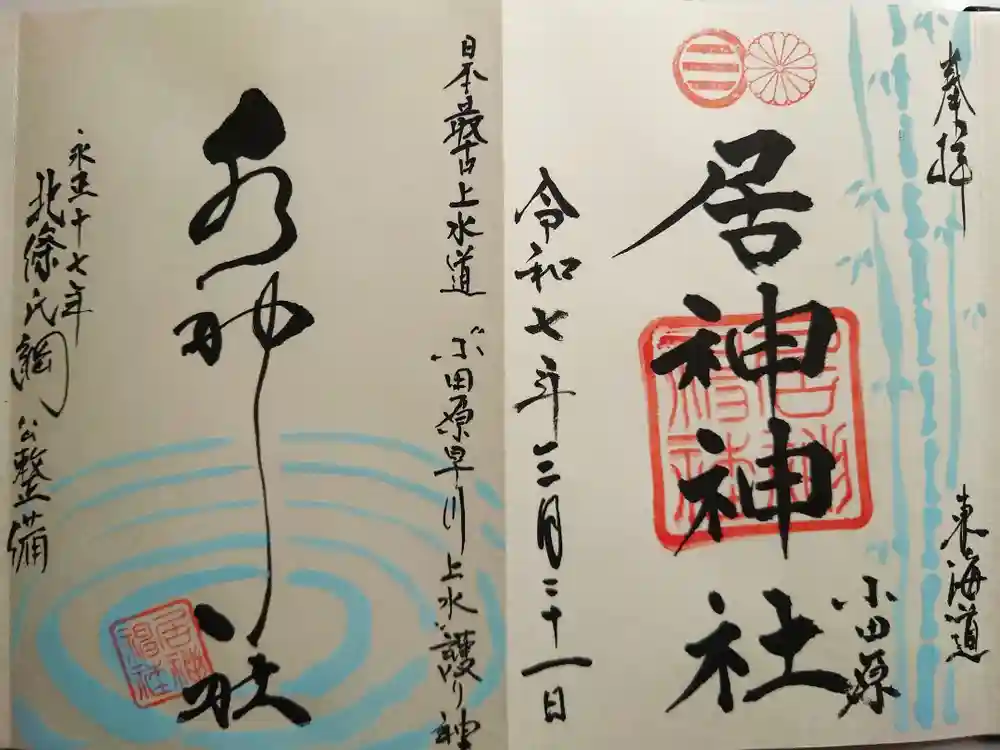 奉拝
東海道
小田原
居神神社
居神神社
令和七年三月三十一日
日本最古上水道 小田原早川上水護り神
水神社
居神神社
永正十七年
北條氏綱公整備